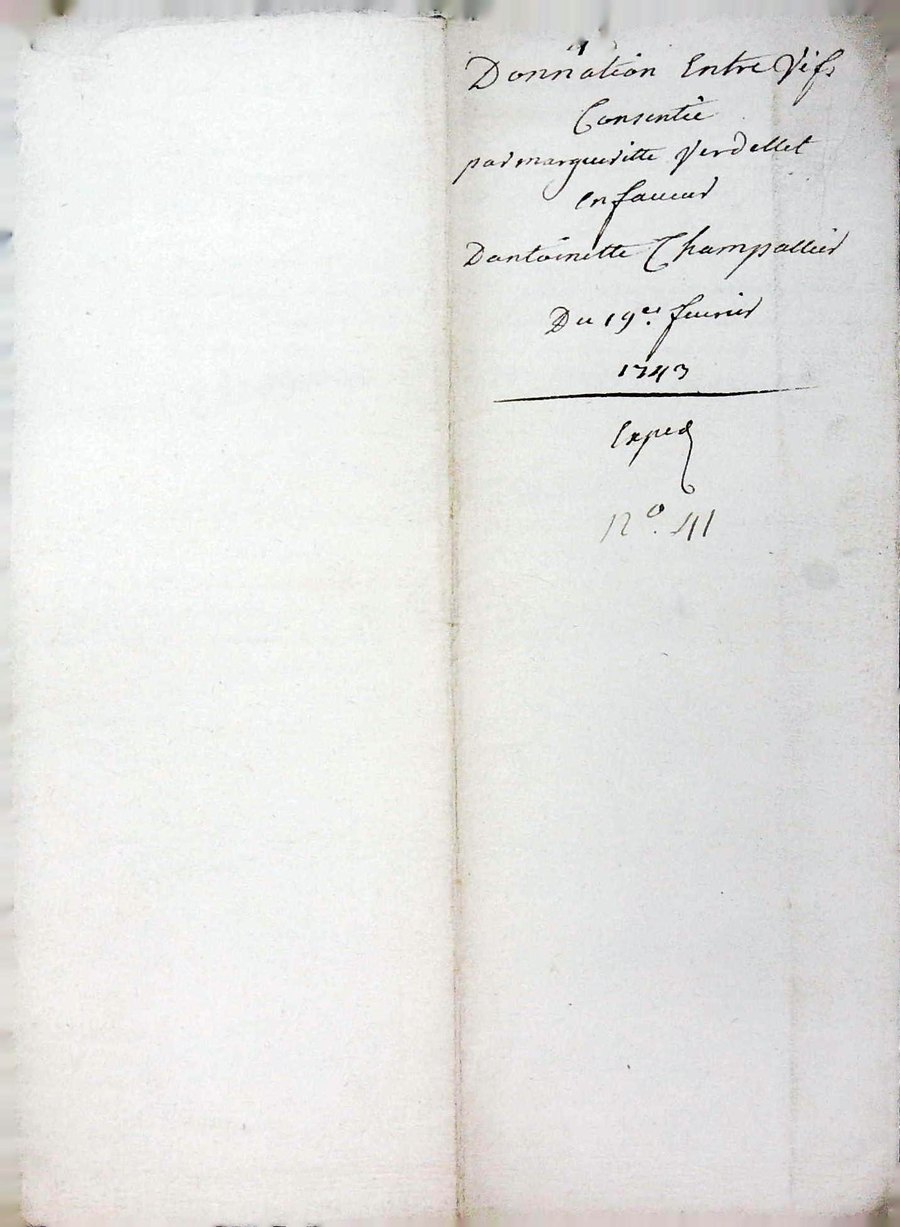 Donnation Entre Vifs
Consentie
par margueritte Verdellet
en faueur
Dantoinette Champallier
Du 19er. feurier
1743
Exped
No. 41